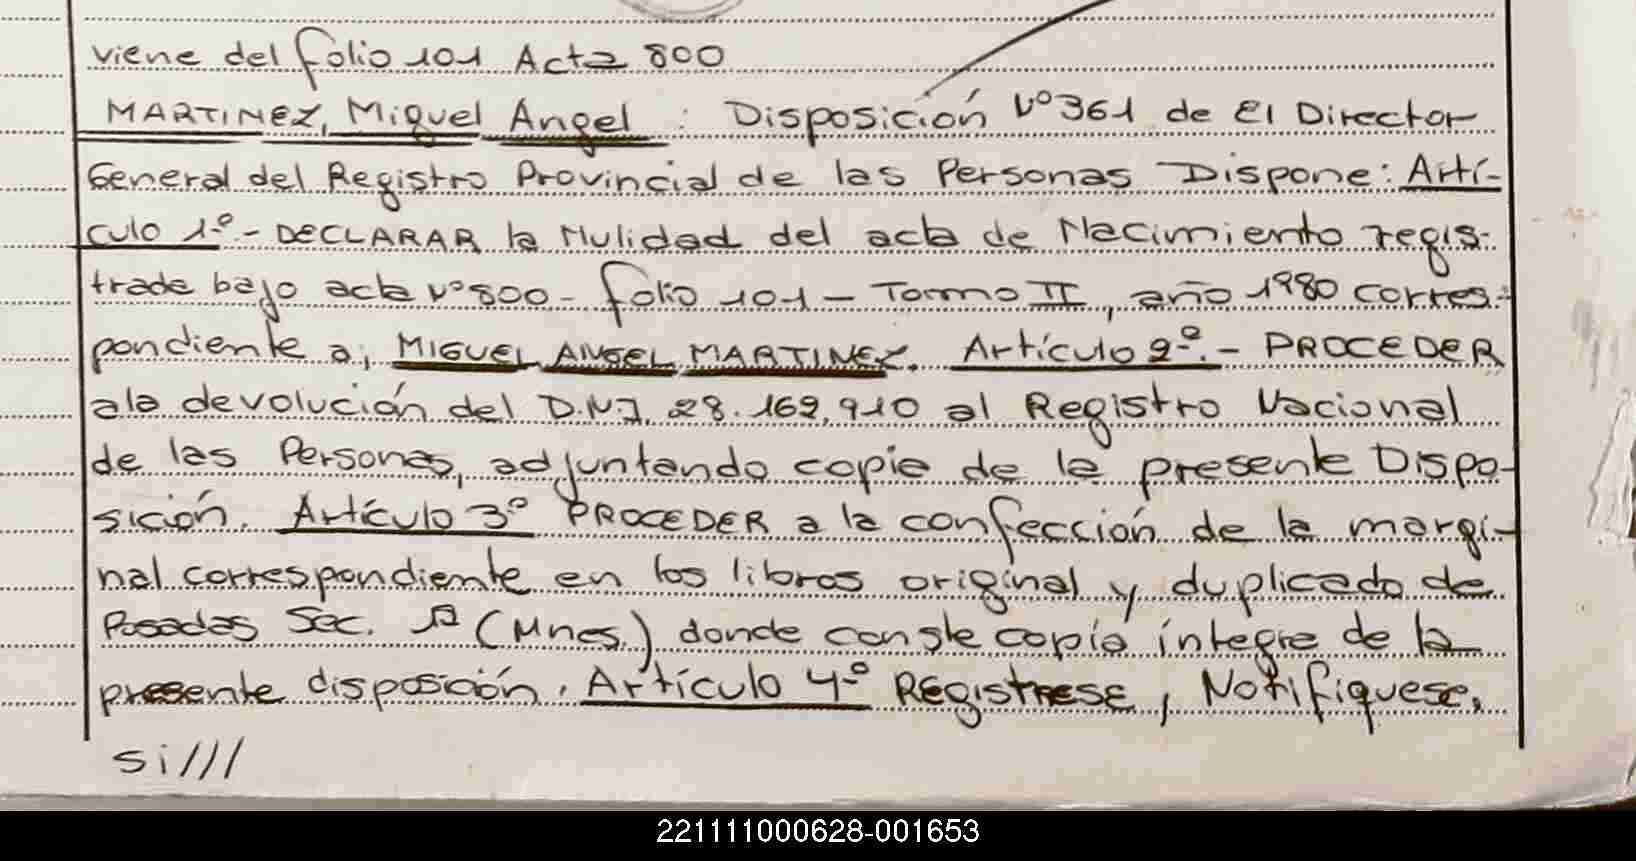 viene del folio 101 Acta 800
MARTINEZ, Miguel Angel : Disposición Nº 361 de El Director
General del Registro Provincial de las Personas Dispone: Artí-
culo 1º.- DECLARAR la Nulidad del acta de Nacimiento regis-
trada bajo acta Nº 800 - folio 101 - Tomo II, año 1980 corres-
pondiente a; MIGUEL ANGEL MARTINEZ. Artículo 2º.- PROCEDER
a la devolución del D.N.I. 28.169.910 al Registro Nacional
de las Personas, adjuntando copia de la presente Dispo-
sición. Artículo 3º PROCEDER a la confección de la margi-
nal correspondiente en los libros original y duplicado de
Posadas Sec. 1ª (Mnes.) donde conste copia íntegra de la
presente disposición. Artículo 4º REGISTRESE, Notifiquese,
si///
221111000628-001653